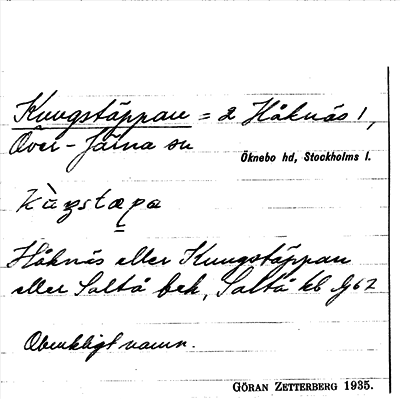 Kungstäppan = 2 Håknäs 1,
Över-Järna sn
Öknebo hd, Stockholms l.
Håknäs eller Kungstäppan
eller Saltå bek, Saltå kb G62
Obrukligt namn.
GÖRAN ZETTERBERG 1935.